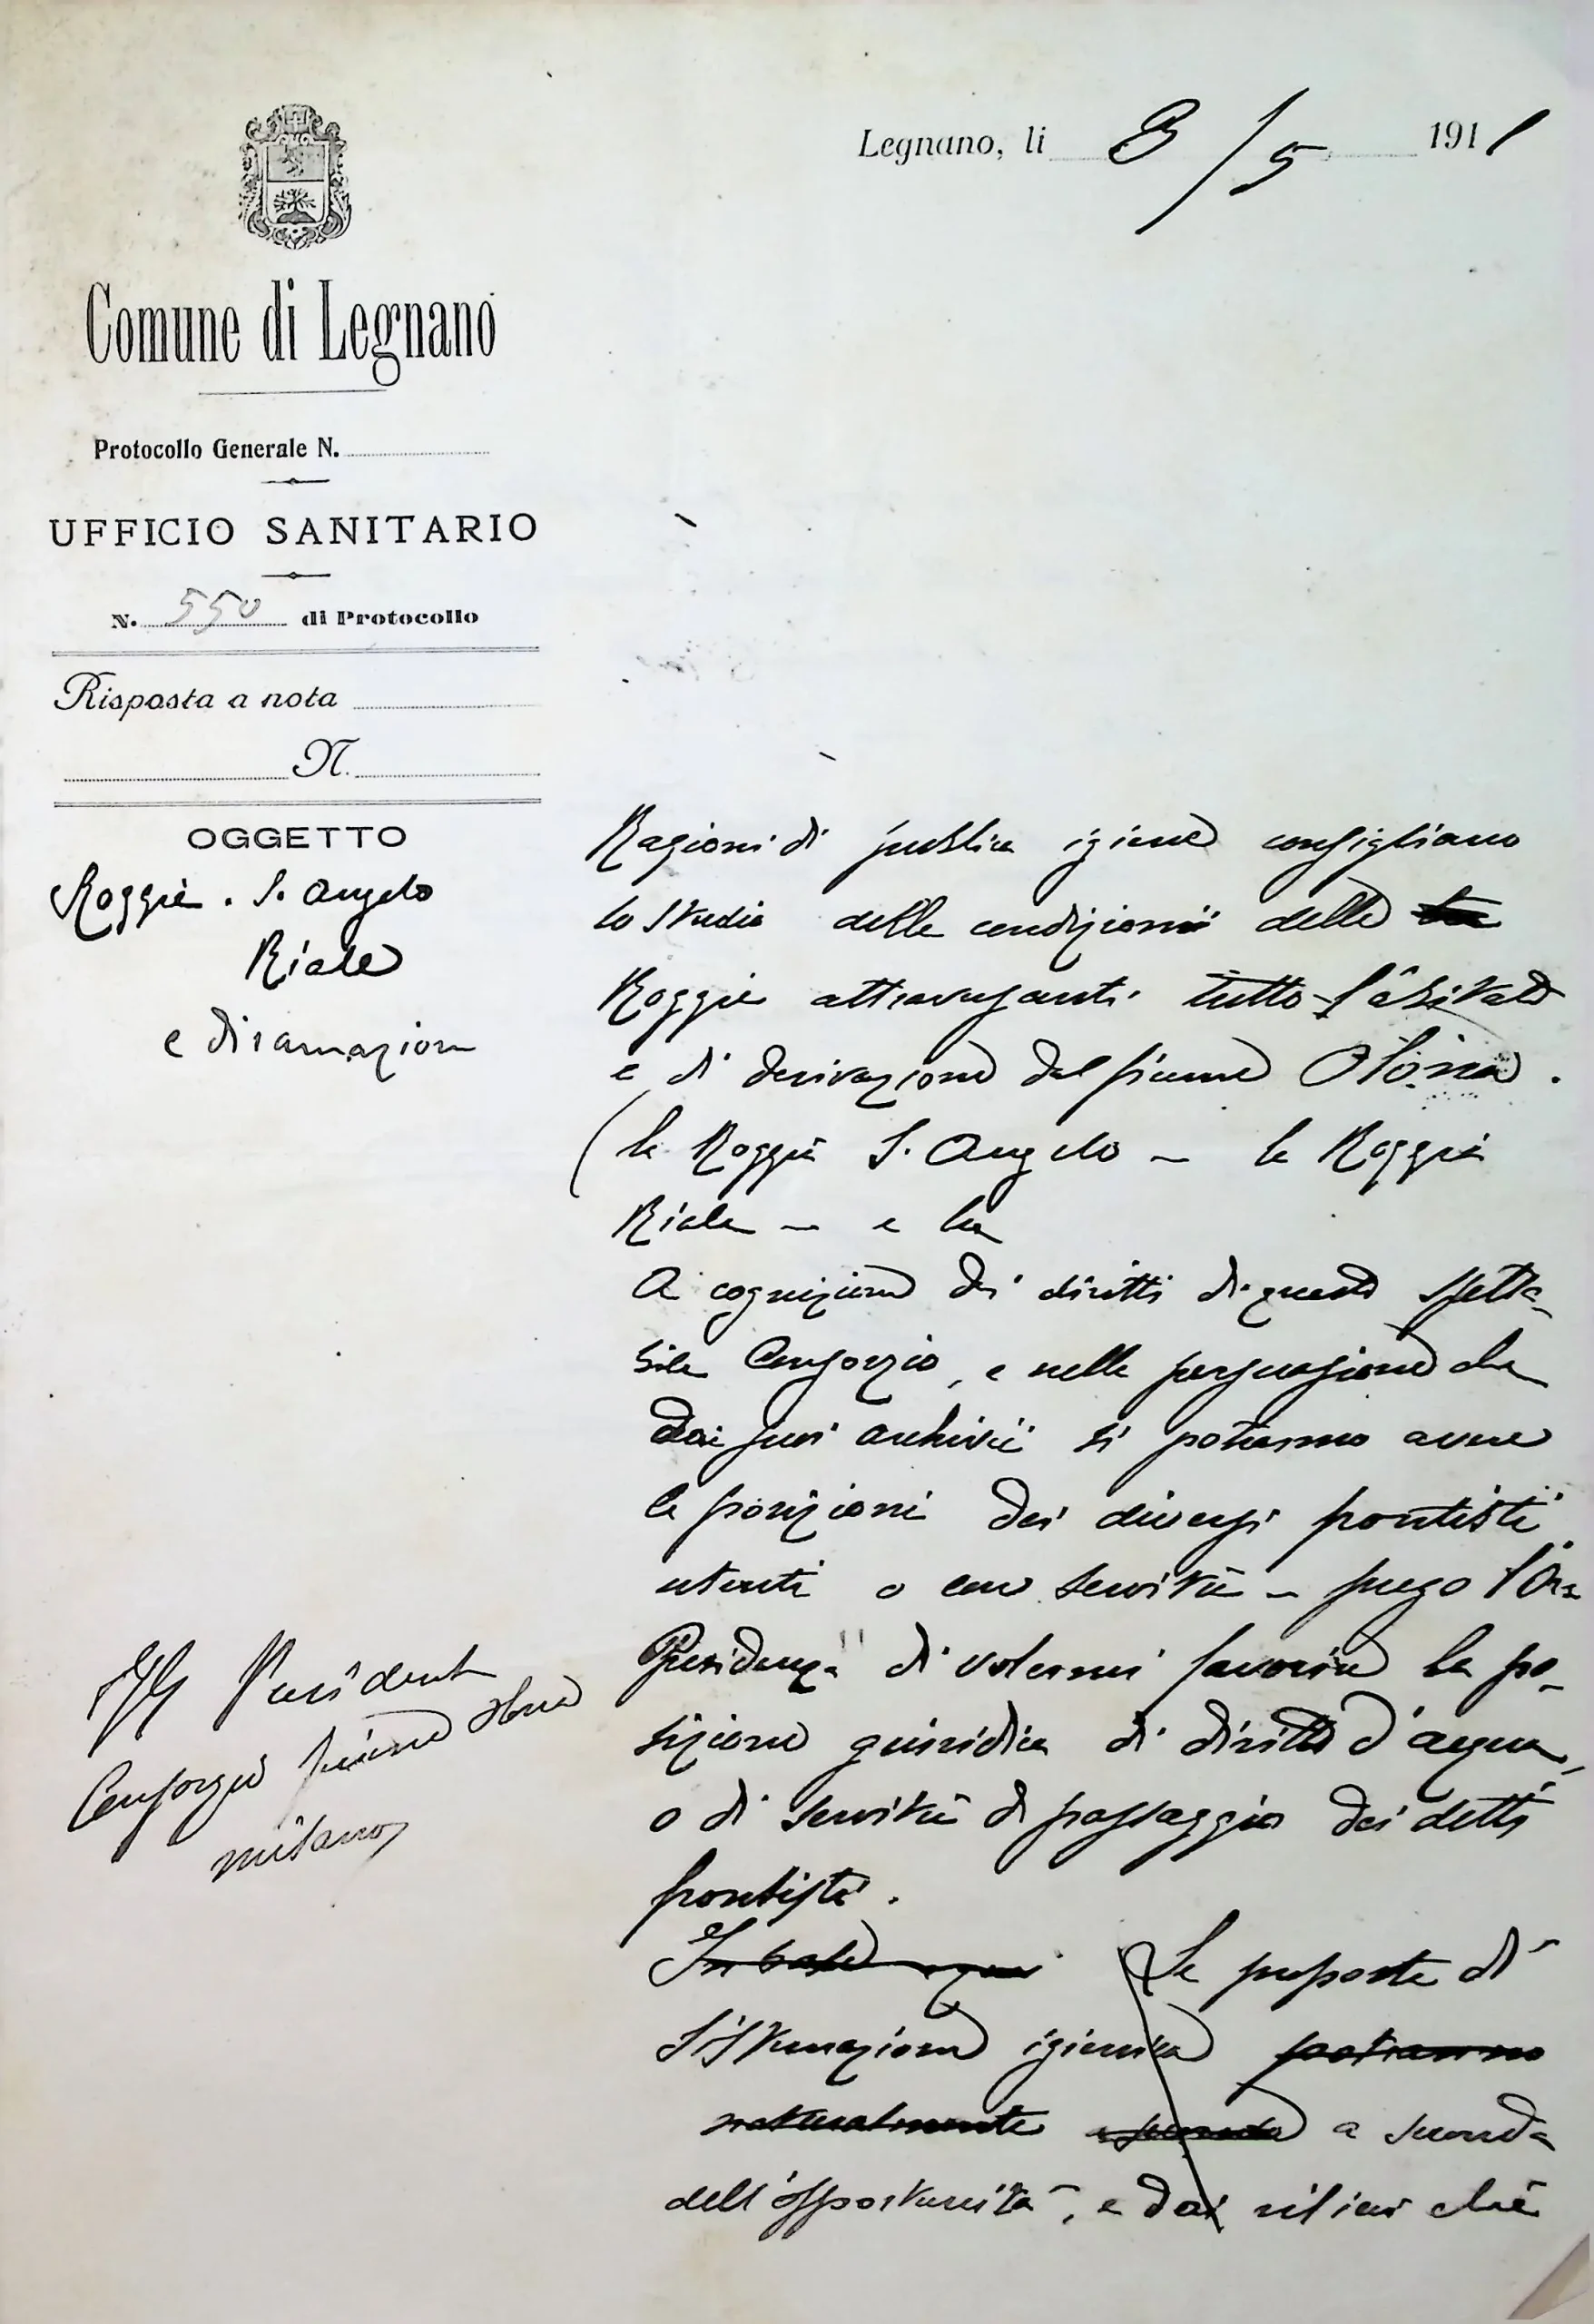 Legnano, li 8/5 1911
Comune di Legnano
Protocollo Generale N.
UFFICIO SANITARIO
N. 550 di Protocollo
Risposta a nota
N.
OGGETTO
Roggie. S. Angelo
Riale
e diramazioni
Ragioni di publica igiene consigliano
lo studio delle condizioni delle
Roggie attraversanti tutto l'abitato
e di derivazione dal fiume Olona.
(la Roggia S. Angelo - la Roggia
Riale - e la
A cognizione dei diritti di questo spetta-
bile Consorzio, e nella persuasione che
dai suoi archivii si potranno avere
le posizioni dei diversi frontisti
utenti o con servitù - prego l'On.
Presidenza di volermi favorire la po-
sizione giuridica di diritto d'acqua,
o di servitù di passaggio dei detti
frontisti.
Ill Presidente
Consorzio fiume Olona
Milano
In base Le proposte di
sistemazione igienica potranno
naturalmente a seconda a seconda
dell'opportunità, e dai rilievi che